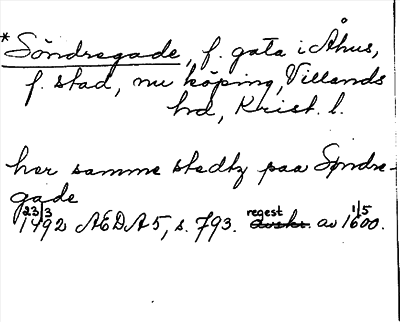 *Söndregade, f. gata i Åhus,
f. stad, nu köping, Villands
hd, Krist. l.
her samme stedtz paa Søndre-
gade
23/3 1492 AEDA 5, s. 793. regest av 1/5 1600.